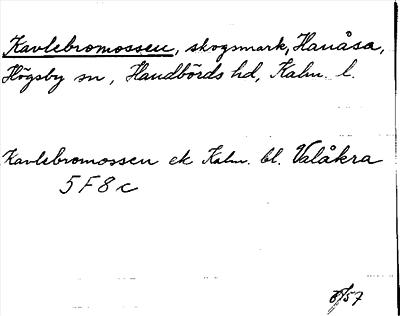 Kavlebromossen, skogsmark, Hanåsa,
Högsby sn, Handbörds hd, Kalm. l.
Kavlebromossen ek Kalm. bl. Valåkra
5F8c